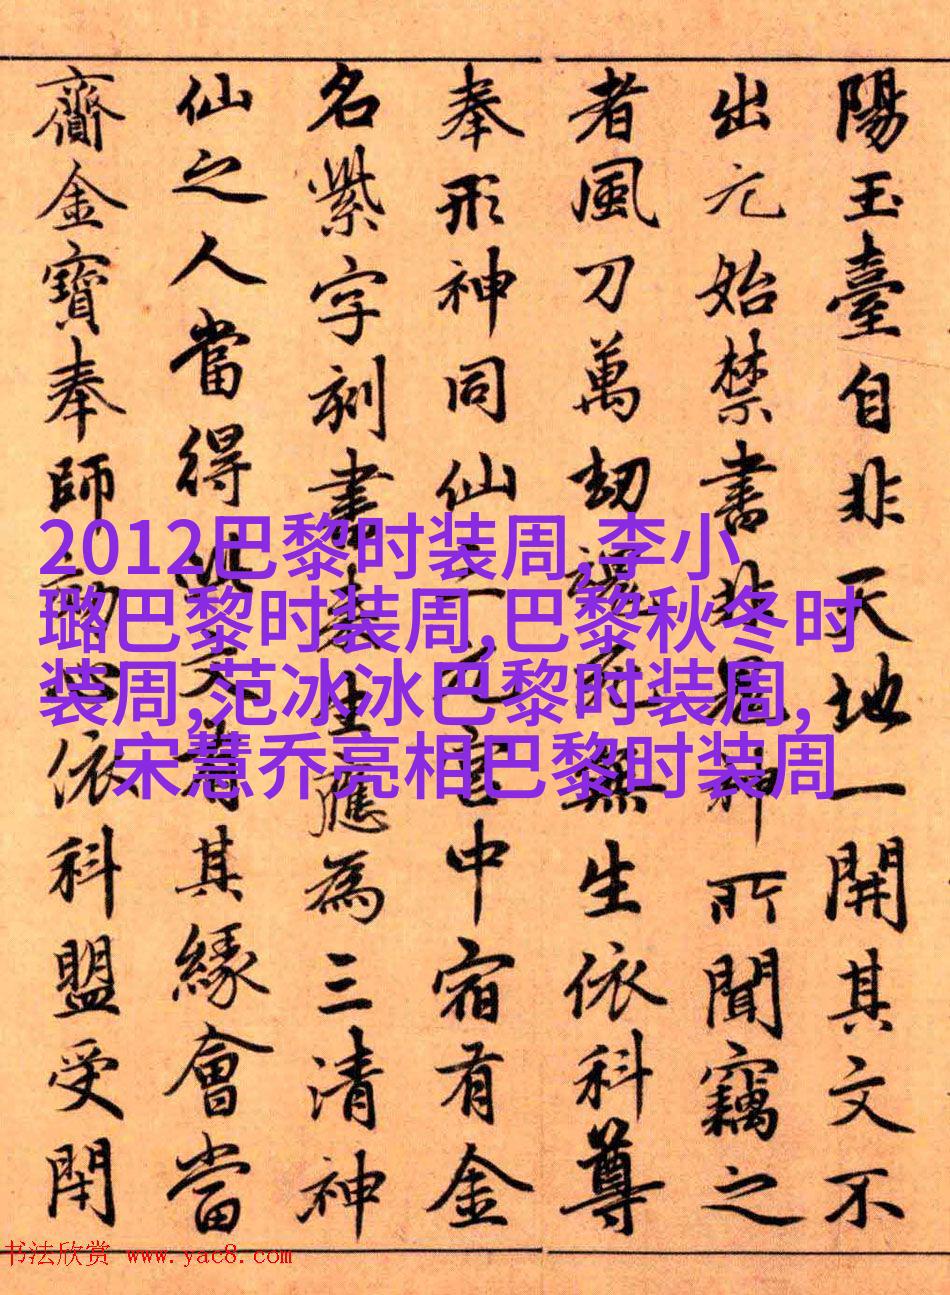 陽玉臺自非天地一開其文不
出元始禁書非鬼神所聞竊之
者風刀萬劫無生依科尊
奉形神同仙中宿有金
名紫字刻書生應為三清神
仙之人當得此文者其緣會當
齎金寶奉師依科盟受閇
2012巴黎时装周,李小
璐巴黎时装周,巴黎秋冬时
装周,范冰冰巴黎时装周,
宋慧乔亮相巴黎时装周
书法欣赏 www.yac8.com